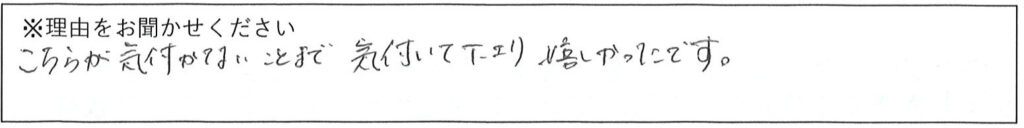 ※理由をお聞かせください
こちらが気付かないことまで 気付いて下さり 嬉しかったです。